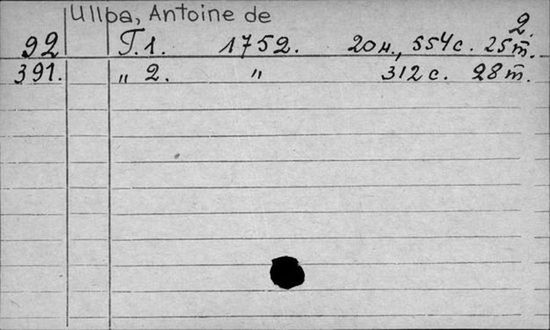 Ullpa, Antoine de
2.
92 Т. 1. 1752. 20 н., 554 с. 25 т.
391. „ 2. „ 312 с. 28 т.